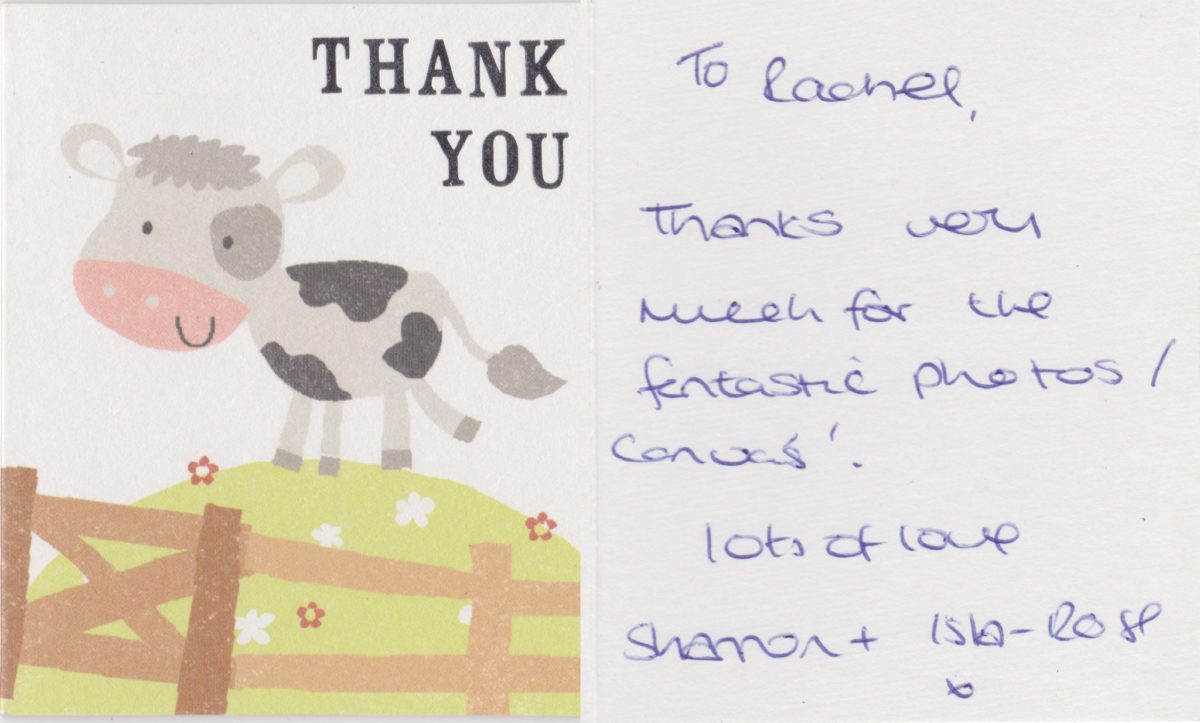 THANK
YOU
To Rachel,
Thanks very
much for the
fantastic photos/
Canvas!
lots of love
Sharron + Isla-Rose
x